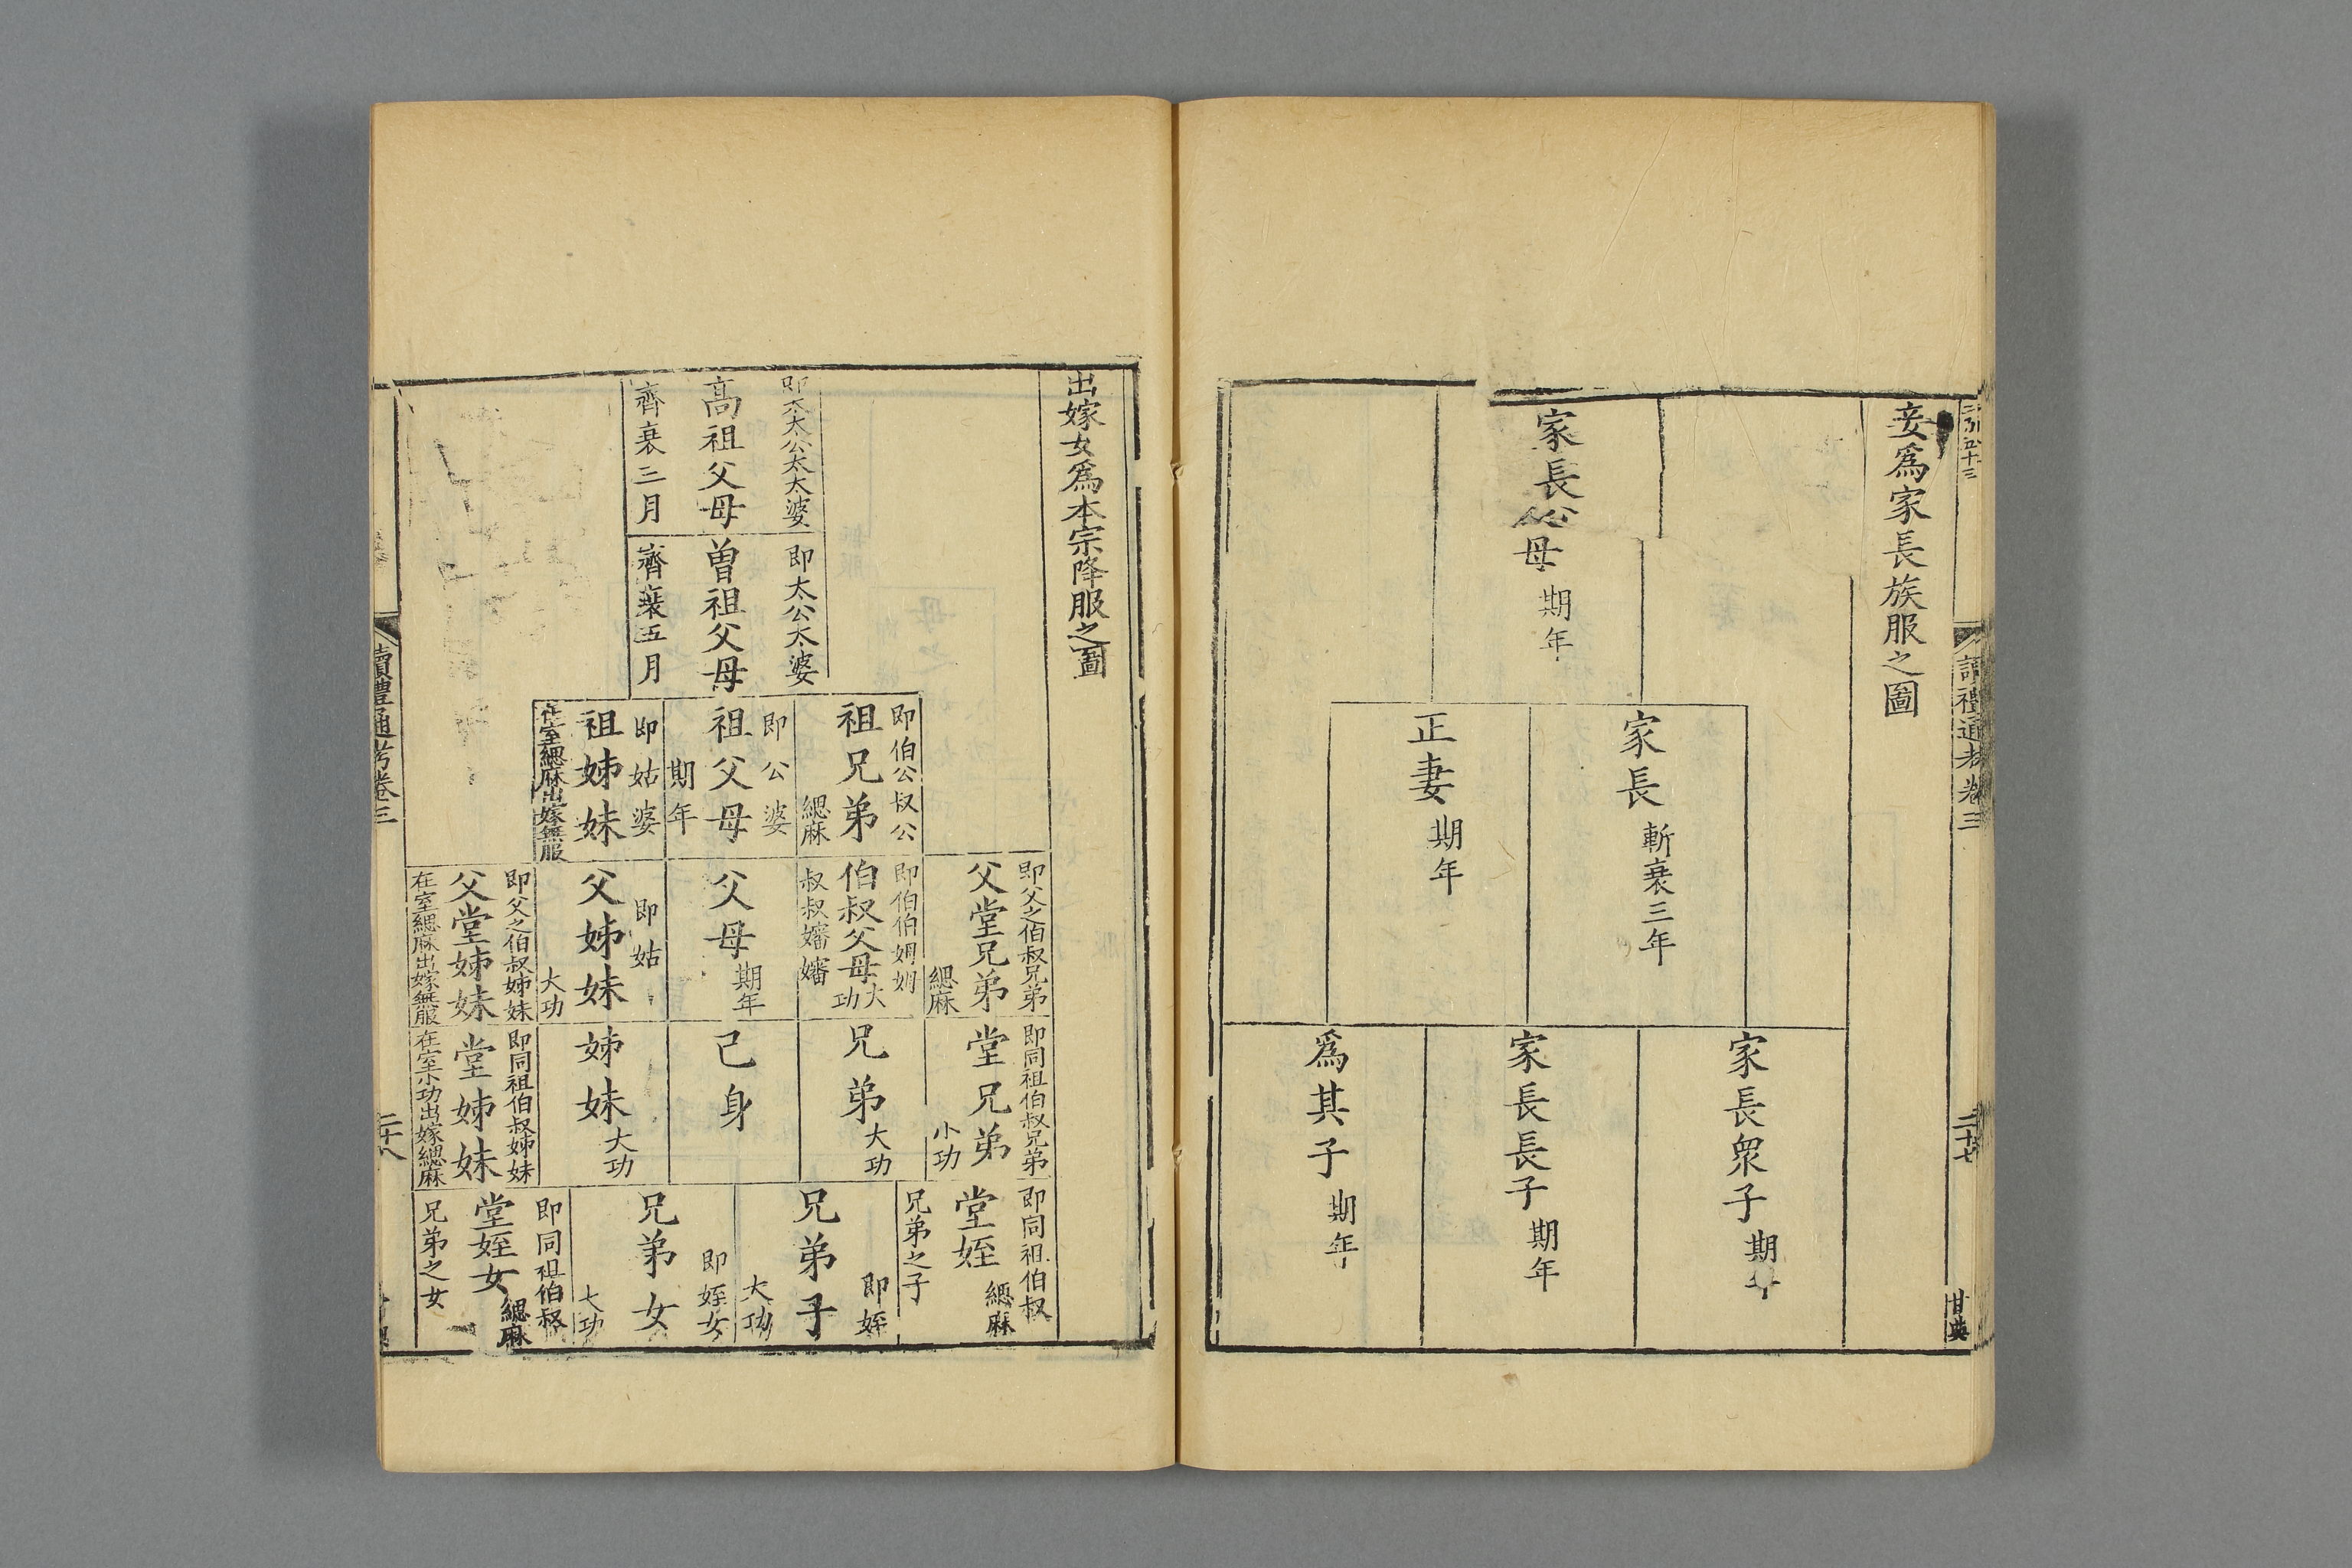 妾爲家長族服之圖
家長父母 期年
家長 斬衰三年
正妻 期年
家長衆子 期年
家長長子 期年
爲其子 期年
讀禮通考卷三
二十七
甘典
出嫁女爲本宗降服之圖
即太太公太太婆
高祖父母
齊衰三月
即太公太婆
曾祖父母
齊衰五月
即伯公叔公
祖兄弟
緦麻
即公婆
祖父母
期年
即姑婆
祖姊妹
在室緦麻出嫁無服
即父之伯叔兄弟
父堂兄弟
緦麻
即伯伯姆姆
伯叔父母 大功
叔叔嬸嬸
父母 期年
即姑
父姊妹
大功
即父之伯叔姊妹
父堂姊妹
在室緦麻出嫁無服
即同祖伯叔兄弟
堂兄弟
小功
兄弟 大功
己身
姊妹 大功
即同祖伯叔姊妹
堂姊妹
在室小功出嫁緦麻
即同祖伯叔
堂姪 緦麻
兄弟之子
即姪
兄弟子
大功
即姪女
兄弟女
大功
即同祖伯叔
堂姪女 緦麻
兄弟之女
讀禮通考卷三
二十八